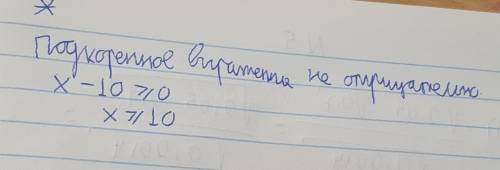 *
Подкоренное выражение не отрицательно
x - 10 ⩾ 0
x ⩾ 10